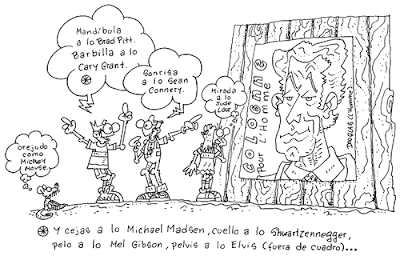 Mandíbula
a lo Brad Pitt.
Barbilla a lo
Cary Grant.
Sonrisa
a lo Sean
Connery.
Mirada
a lo
Jude
Law
Orejudo
como
Mickey
Mouse.
COLOGNE
Pour L'Homme
Y cejas a lo Michael Madsen, cuello a lo Shwartzennegger,
pelo a lo Mel Gibson, pelvis a lo Elvis (fuera de cuadro)...